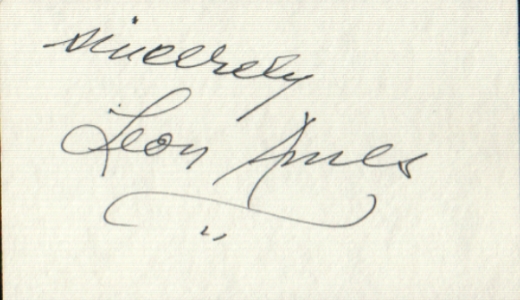 sincerely
Leon Ames